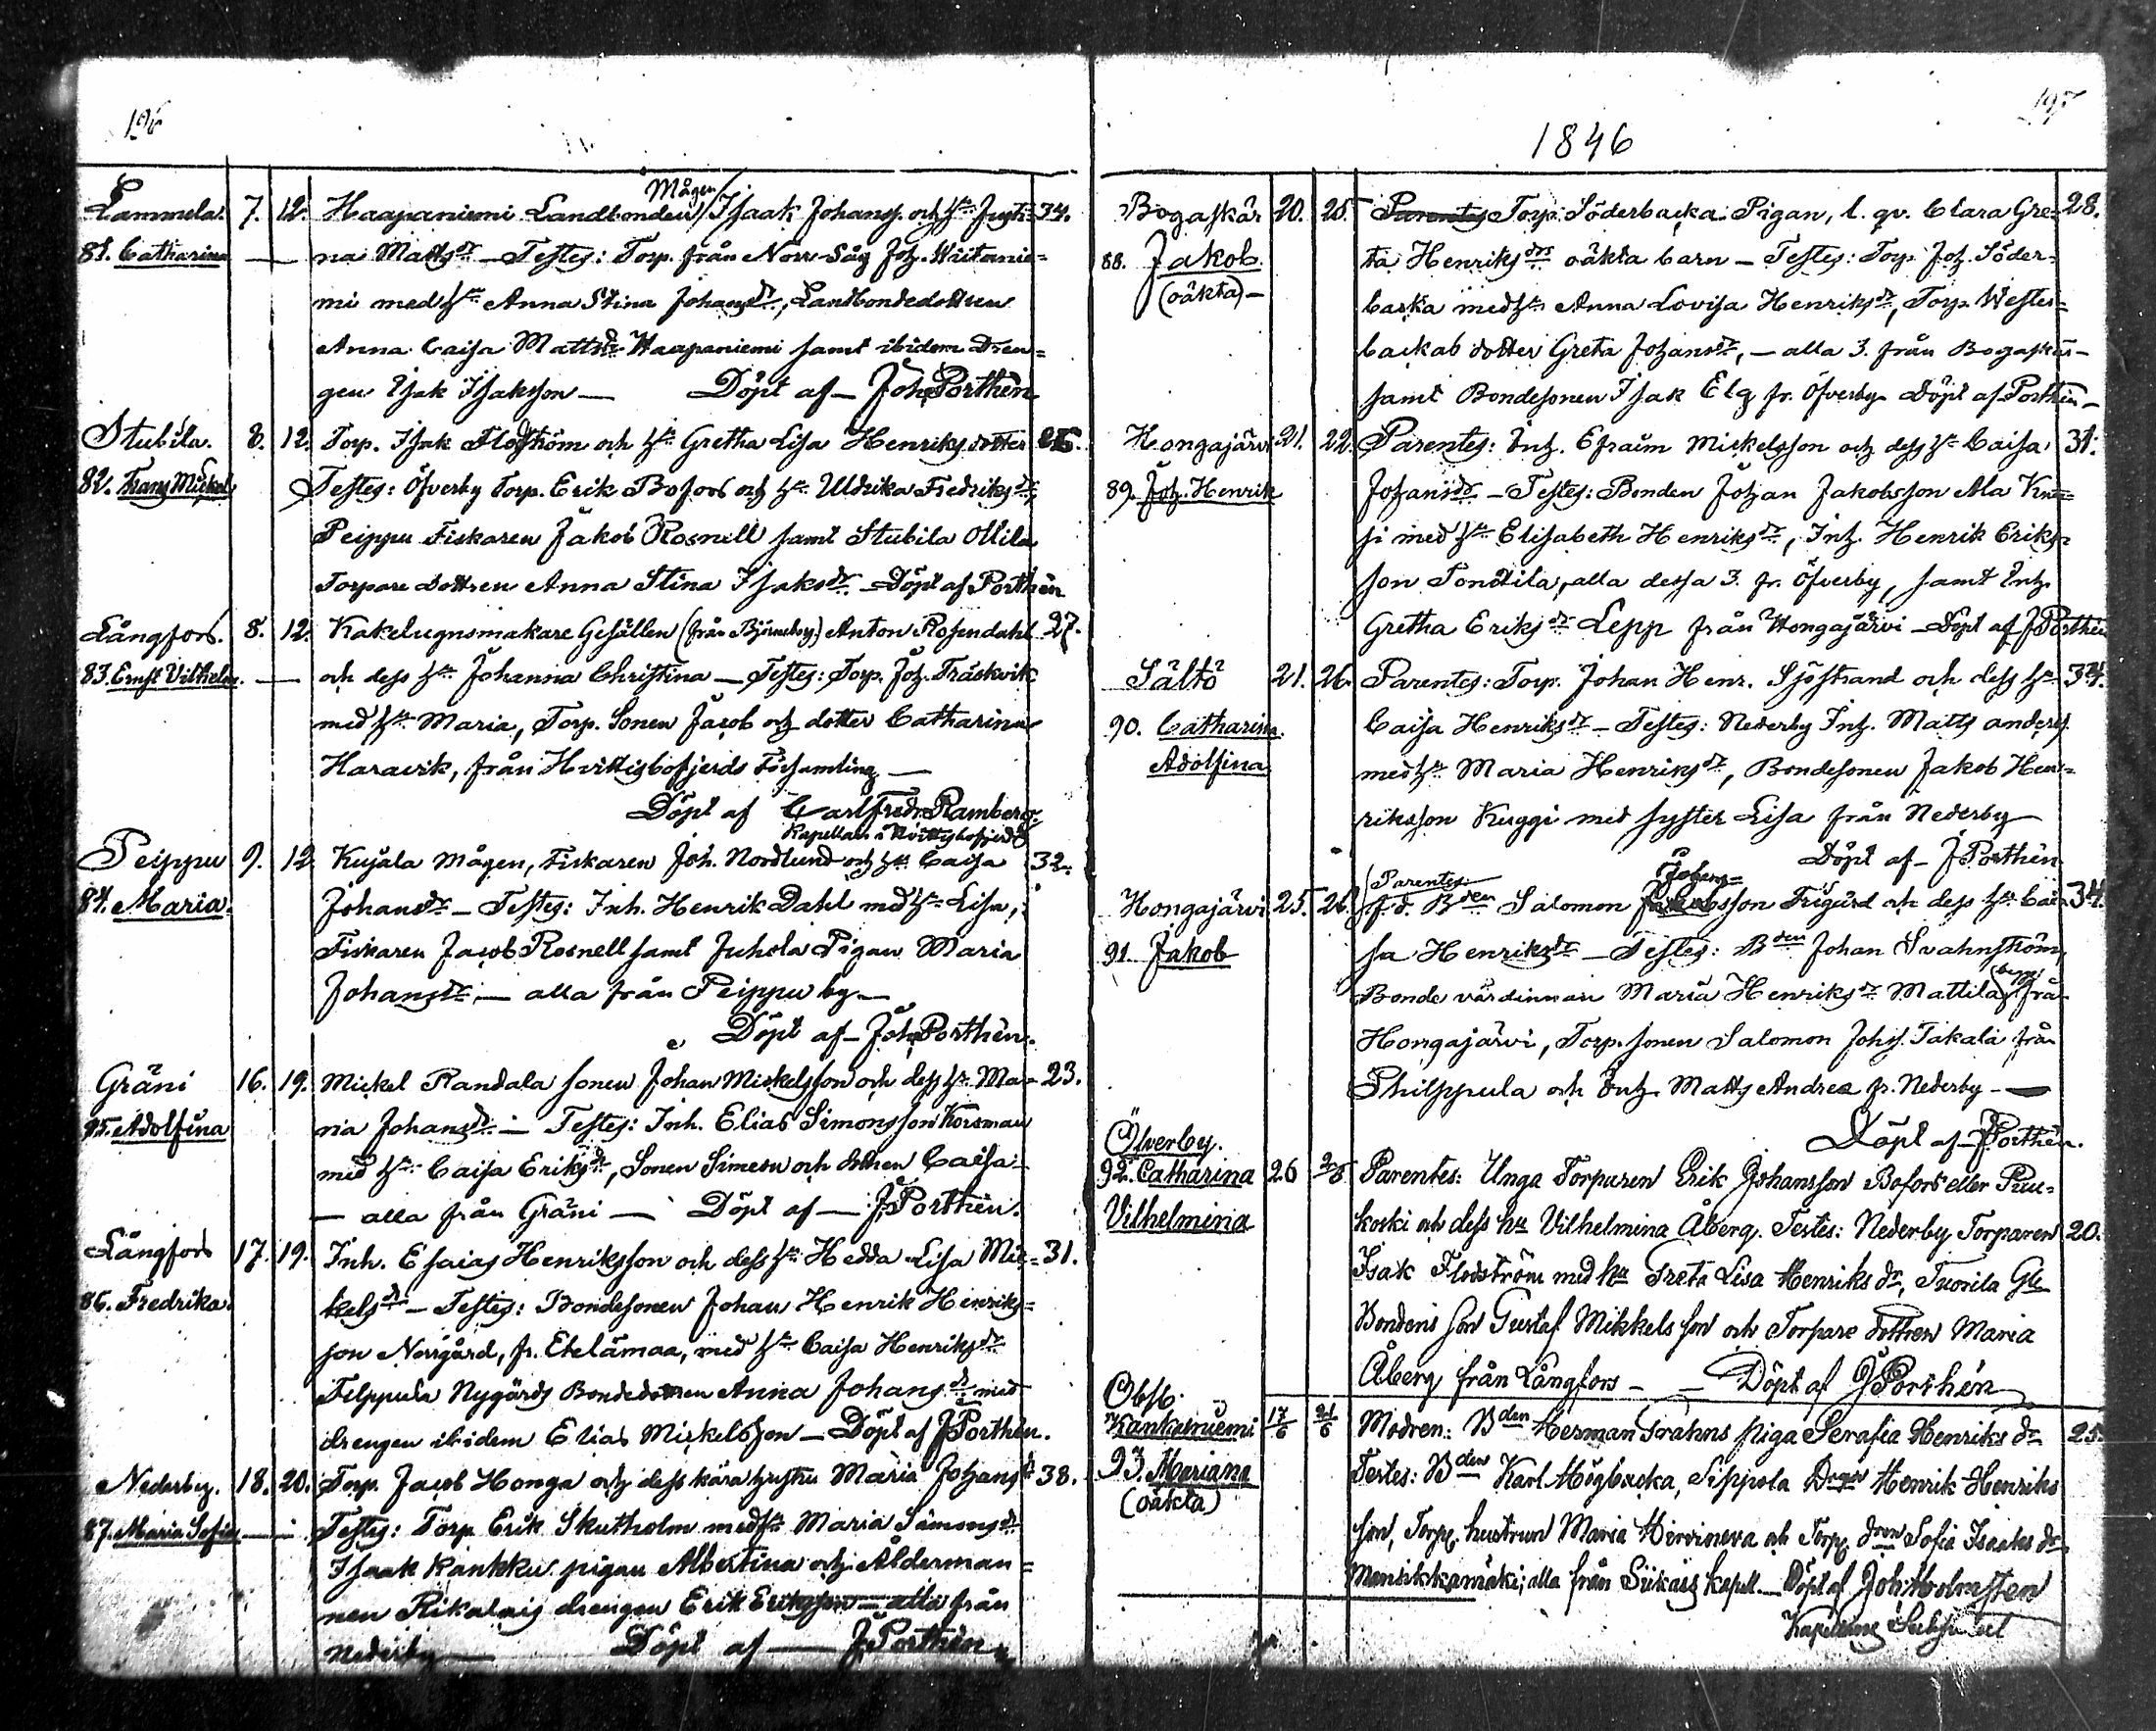 196
Lammela. 7. 12. Haapaniemi Landbonden Mågen Isaak Johanss. och h:u Justi= 34.
81. Catharina — na Matts dr — Testes: Torp. från Norr-Såg Joh. Waitanie=
mi med h:u Anna Stina Johans dr, Landbondedottren
Anna Caisa Matts dr Haapaniemi samt ibidem Dren=
gen Isak Isaksson — Döpt af — Joh. Porthén
Stubila. 8. 12. Torp. Isak Flodström och h:u Gretha Lisa Henriks dotter 26.
82. Frans Mickel Testes: Öfverby Torp. Erik Bofors och h:u Ulrika Fredriks dr,
Peippu Fiskaren Jakob Rosnell samt Stubila Ollila
Torpare dottren Anna Stina Isaks dr — Döpt af Porthén
Långfors. 8. 12. Kakelugnsmakare Gesällen (från Björneborg) Anton Rosendahl 27.
83. Ernst Vilhelm. — och dess h:u Johanna Christina — Testes: Torp. Joh. Träskvik
med h:u Maria, Torp. Sonen Jacob och dotter Catharina
Haravik, från Hvittisbofjerds Församling —
Döpt af Carl Fredr. Ramberg.
Kapellan i Hvittisbofjerd
Peippu 9. 12. Kujala Mågen, Fiskaren Joh. Nordlund och h:u Caisa 32.
84. Maria. Johans dr — Testes: Inh. Henrik Dahl med h:u Lisa,
Fiskaren Jacob Rosnell samt Juhola Pigan Maria
Johans dr, — alla från Peippu by —
Döpt af — Joh. Porthén.
Gräni 16. 19. Mickel Randala sonen Johan Mickelsson och dess h:u Ma= 23.
85. Adolfina ria Johans dr — Testes: Inh. Elias Simonsson Korsman
med h:u Caisa Eriks dr, Sonen Simeon och dottren Caisa —
— alla från Gräni — Döpt af — J. Porthén.
Långfors 17. 19. Inh. Esaias Henriksson och dess h:u Hedda Lisa Mic= 31.
86. Fredrika. kels dr — Testes: Bondesonen Johan Henrik Henriks=
son Norrgård, fr. Etelämaa, med h:u Caisa Henriks dr
Filppula Nygårds Bondedottren Anna Johans dr med
drengen ibidem Elias Mickelsson — Döpt af J. Porthén.
Nederby. 18. 20. Torp. Jacob Honga och dess kära hustru Maria Johans dr 38.
87. Maria Sofia — Testes: Torp Erik Skutholm med h:u Maria Simons dr
Isaak Kankku pigan Albertina och Ålderman=
nen Rikalais drengen Erik Eriksson — alla från
Nederby — Döpt af — J. Porthén
197
1846
Bogaskär 20. 25. Parentes Torp. Söderbacka Pigan, l. qv. Clara Gre= 28.
88. Jakob. ta Henriks drs oäkta barn — Testes: Torp Joh. Söder=
(oäkta) — backa med h:u Anna Lovisa Henriks dr, Torp. Wester=
backas dotter Greta Johans dr, — alla 3. från Bogaskär —
samt Bondesonen Isak Elg fr. Öfverby Döpt af Porthén —
Hongajärvi 21. 22. Parentes: Inh. Efraim Mickelsson och dess h:u Caisa 31.
89. Joh. Henrik Johans dr — Testes: Bonden Johan Jakobsson Ala
med h:u Elisabeth Henriks dr, Inh. Henrik Eriks=
son Tonttila, alla dessa 3. fr. Öfverby, samt Inh.
Gretha Eriks dr Lepp från Hongajärvi — Döpt af J. Porthén
Sältö 21. 26. Parentes: Torp. Johan Henr. Sjöstrand och dess h:u 34.
90. Catharina Caisa Henriks dr — Testes: Nederby Inh. Matts Anders.
Adolfina med h:u Maria Henriks dr, Bondesonen Jakob Hen=
riksson Kuggi med syster Lisa från Nederby —
Döpt af — J. Porthén
Hongajärvi 25. 26. Parentes: f. d. B:den Salomon Johans= Jakobsson Frigård och dess h:u Cai= 34.
91. Jakob sa Henriks dr — Testes: B:den Johan Svahnström,
Bonde värdinnan Maria Henriks dr Mattila, begge från
Hongajärvi, Torp. sonen Salomon Johs. Takala från
Philppula och Inh. Matts Andrea fr. Nederby —
Döpt af — J. Porthén.
Öfverby.
92. Catharina 26 2/6 Parentes: Unga Torparen Erik Johansson Bofors eller Puu=
Vilhelmina koski och dess h:u Vilhelmina Åberg. Testes: Nederby Torparen 20.
Isak Flodström med h:u Greta Lisa Henriks dr, Tuorila Gle
Bondens son Gustaf Mikkels son och Torpare dottren Maria
Åberg från Långfors — — Döpt af J. Porthén
Obs!
Kankaniemi 17/6 21/6 Modren: B:den Herman Svahns piga Serafia Henriks dr 25.
93. Mariana Testes: B:den Karl Högbacka, Sippola Dr:gn Henrik Henriks
(oäkta) son, Torp. hustrun Maria Hirvineva och Torp. d:ren Sofia Isaaks dr
Mansikkamäki; alla från Siikais kapell. — Döpt af Joh. Holmstén
Kapellans